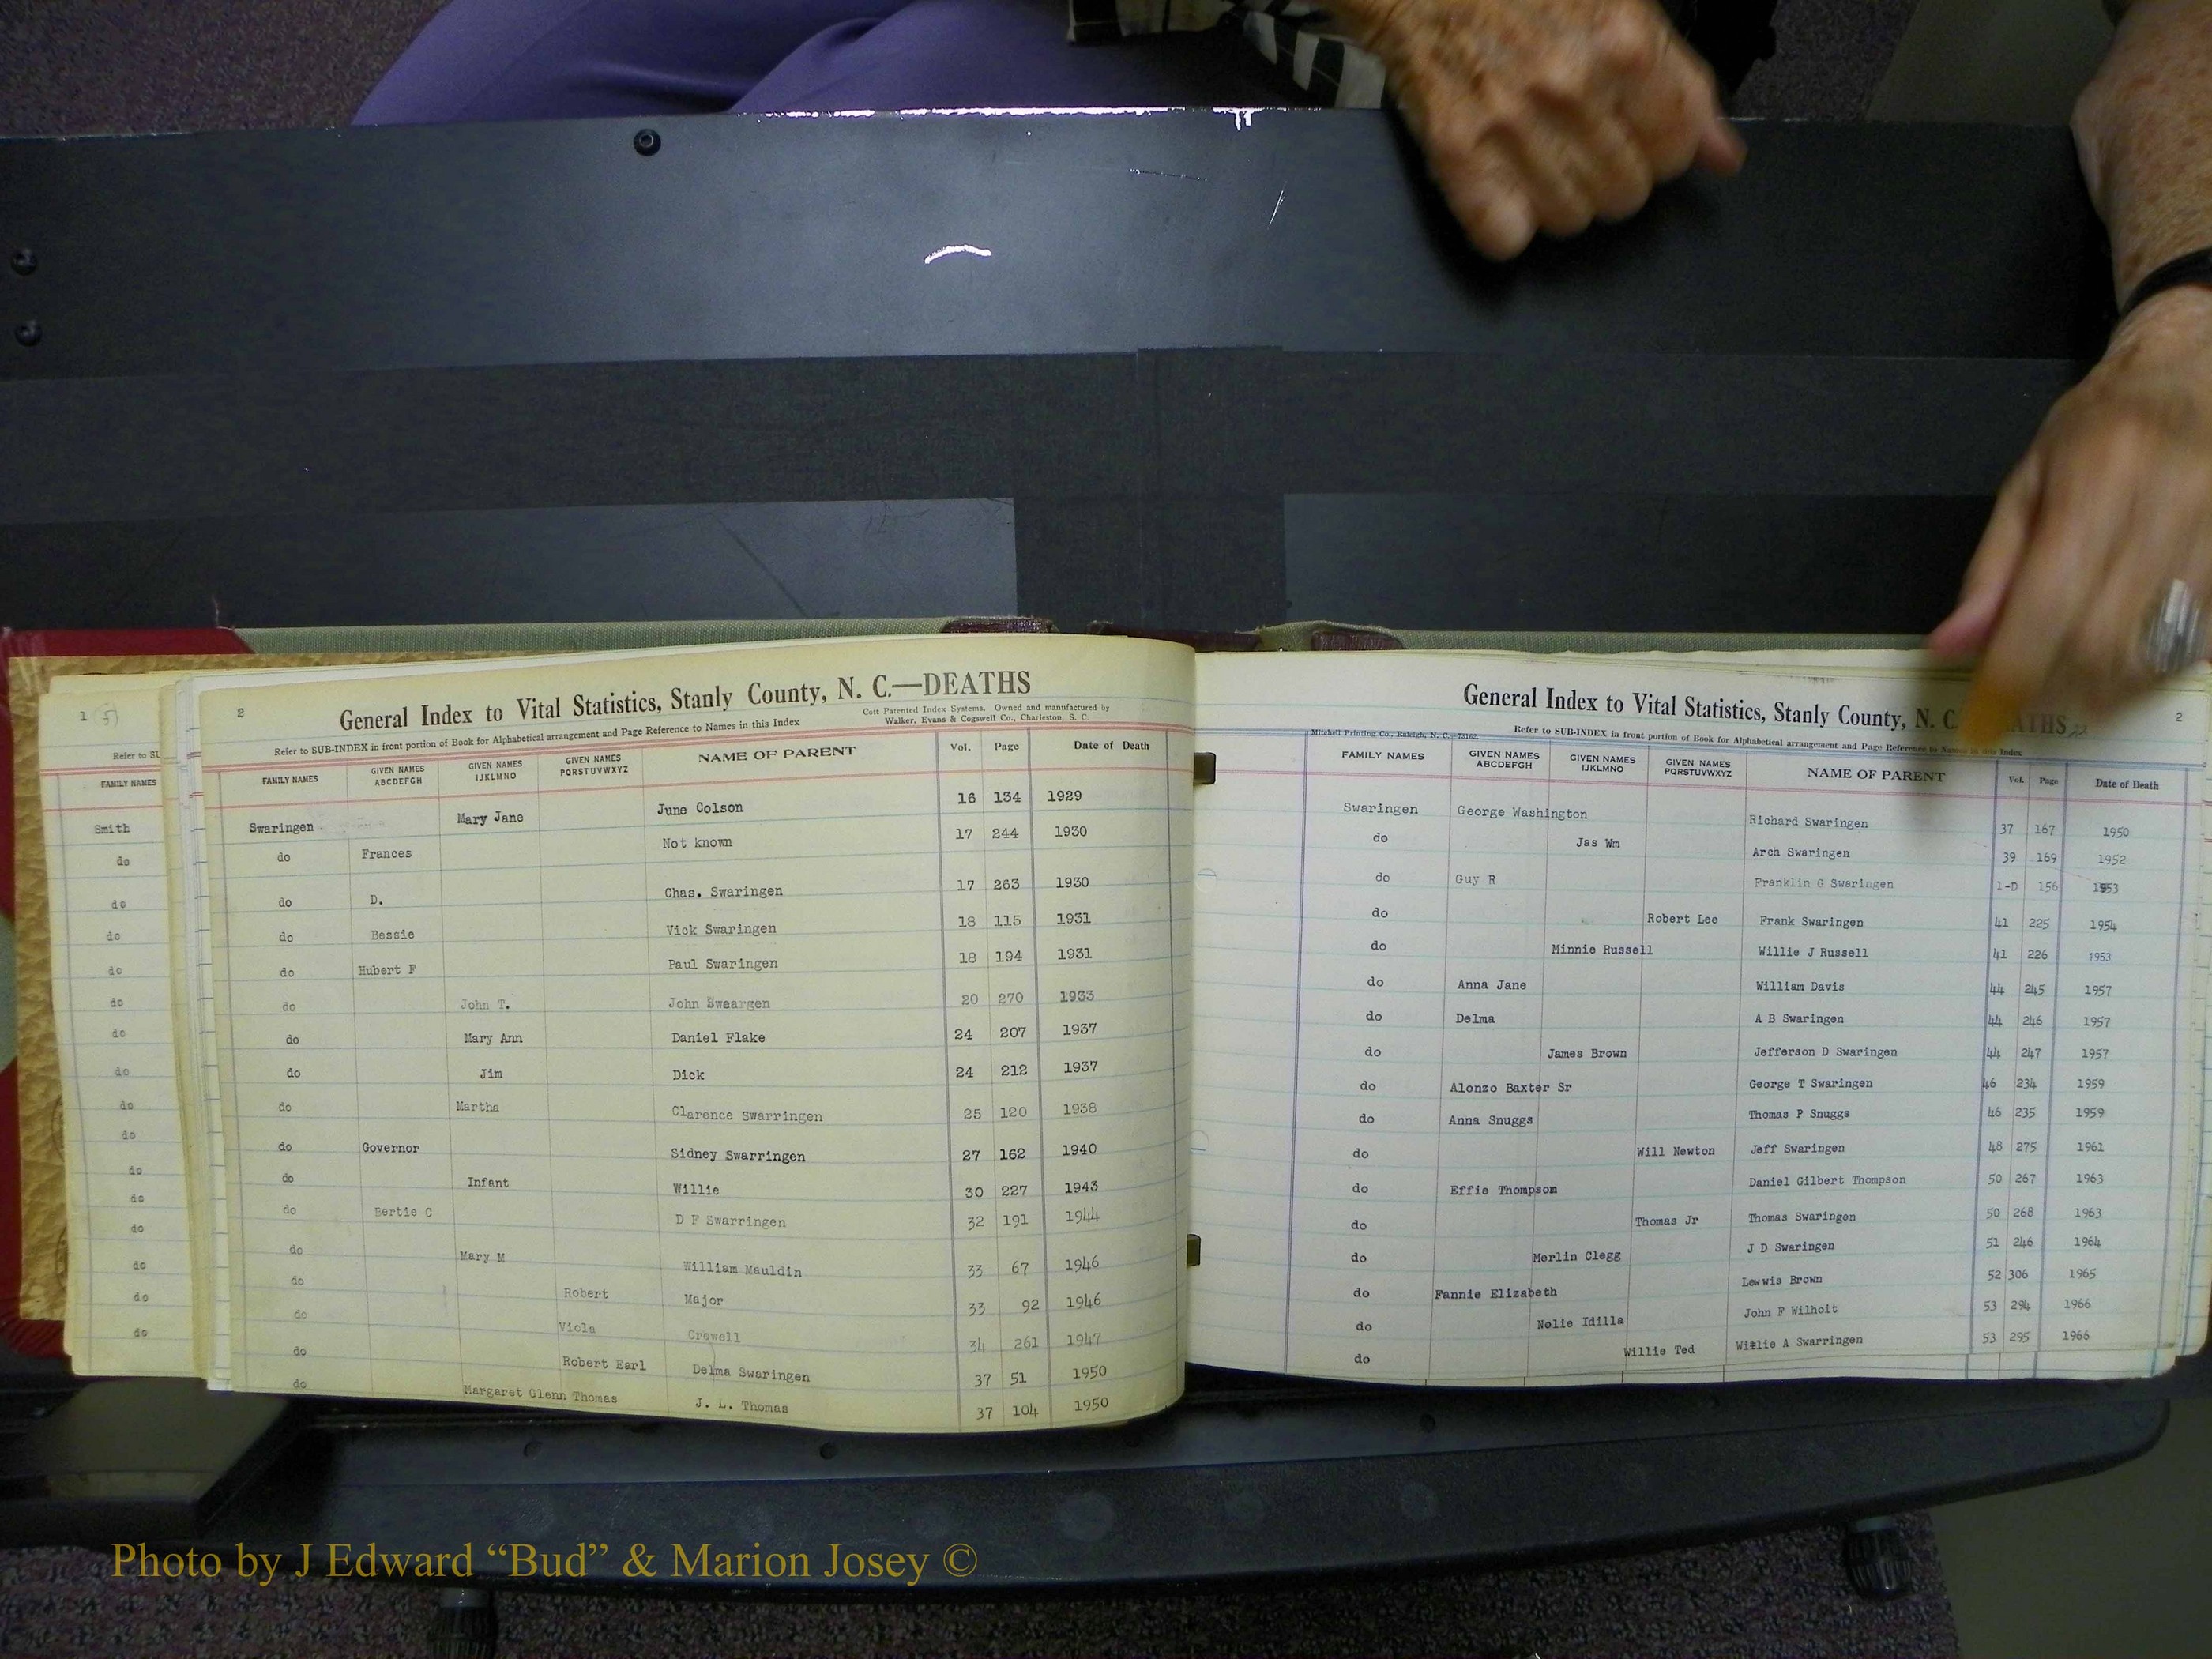 1
Refer to SU
FAMILY NAMES
Smith
do
do
do
do
do
do
do
do
do
do
do
do
do
do
do
2
General Index to Vital Statistics, Stanly County, N. C.—DEATHS
Refer to SUB-INDEX in front portion of Book for Alphabetical arrangement and Page Reference to Names in this Index
Cott Patented Index Systems. Owned and manufactured by
Walker, Evans & Cogswell Co., Charleston, S. C.
FAMILY NAMES GIVEN NAMES ABCDEFGH GIVEN NAMES IJKLMNO GIVEN NAMES PQRSTUVWXYZ NAME OF PARENT Vol. Page Date of Death
Swaringen Mary Jane June Colson 16 134 1929
do Frances Not known 17 244 1930
do D. Chas. Swaringen 17 263 1930
do Bessie Vick Swaringen 18 115 1931
do Hubert F Paul Swaringen 18 194 1931
do John T. John Sweargen 20 270 1933
do Mary Ann Daniel Flake 24 207 1937
do Jim Dick 24 212 1937
do Martha Clarence Swarringen 25 120 1938
do Governor Sidney Swarringen 27 162 1940
do Infant Willie 30 227 1943
do Bertie C D F Swarringen 32 191 1944
do Mary M William Mauldin 33 67 1946
do Robert Major 33 92 1946
do Viola Crowell 34 261 1947
do Robert Earl Delma Swaringen 37 51 1950
do Margaret Glenn Thomas J. L. Thomas 37 104 1950
General Index to Vital Statistics, Stanly County, N. C. DEATHS
2
Mitchell Printing Co., Raleigh, N. C.
Refer to SUB-INDEX in front portion of Book for Alphabetical arrangement and Page Reference to Names in this Index
FAMILY NAMES GIVEN NAMES ABCDEFGH GIVEN NAMES IJKLMNO GIVEN NAMES PQRSTUVWXYZ NAME OF PARENT Vol. Page Date of Death
Swaringen George Washington Richard Swaringen 37 167 1950
do Jas Wm Arch Swaringen 39 169 1952
do Guy R Franklin G Swaringen 1-D 156 1953
do Robert Lee Frank Swaringen 41 225 1954
do Minnie Russell Willie J Russell 41 226 1953
do Anna Jane William Davis 44 245 1957
do Delma A B Swaringen 44 246 1957
do James Brown Jefferson D Swaringen 44 247 1957
do Alonzo Baxter Sr George T Swaringen 46 234 1959
do Anna Snuggs Thomas P Snuggs 46 235 1959
do Will Newton Jeff Swaringen 48 275 1961
do Effie Thompson Daniel Gilbert Thompson 50 267 1963
do Thomas Jr Thomas Swaringen 50 268 1963
do Merlin Clegg J D Swaringen 51 246 1964
do Fannie Elizabeth Lewwis Brown 52 306 1965
do Nelie Idilla John F Wilhoit 53 294 1966
do Willie Ted Willie A Swarringen 53 295 1966
Photo by J Edward “Bud” & Marion Josey ©